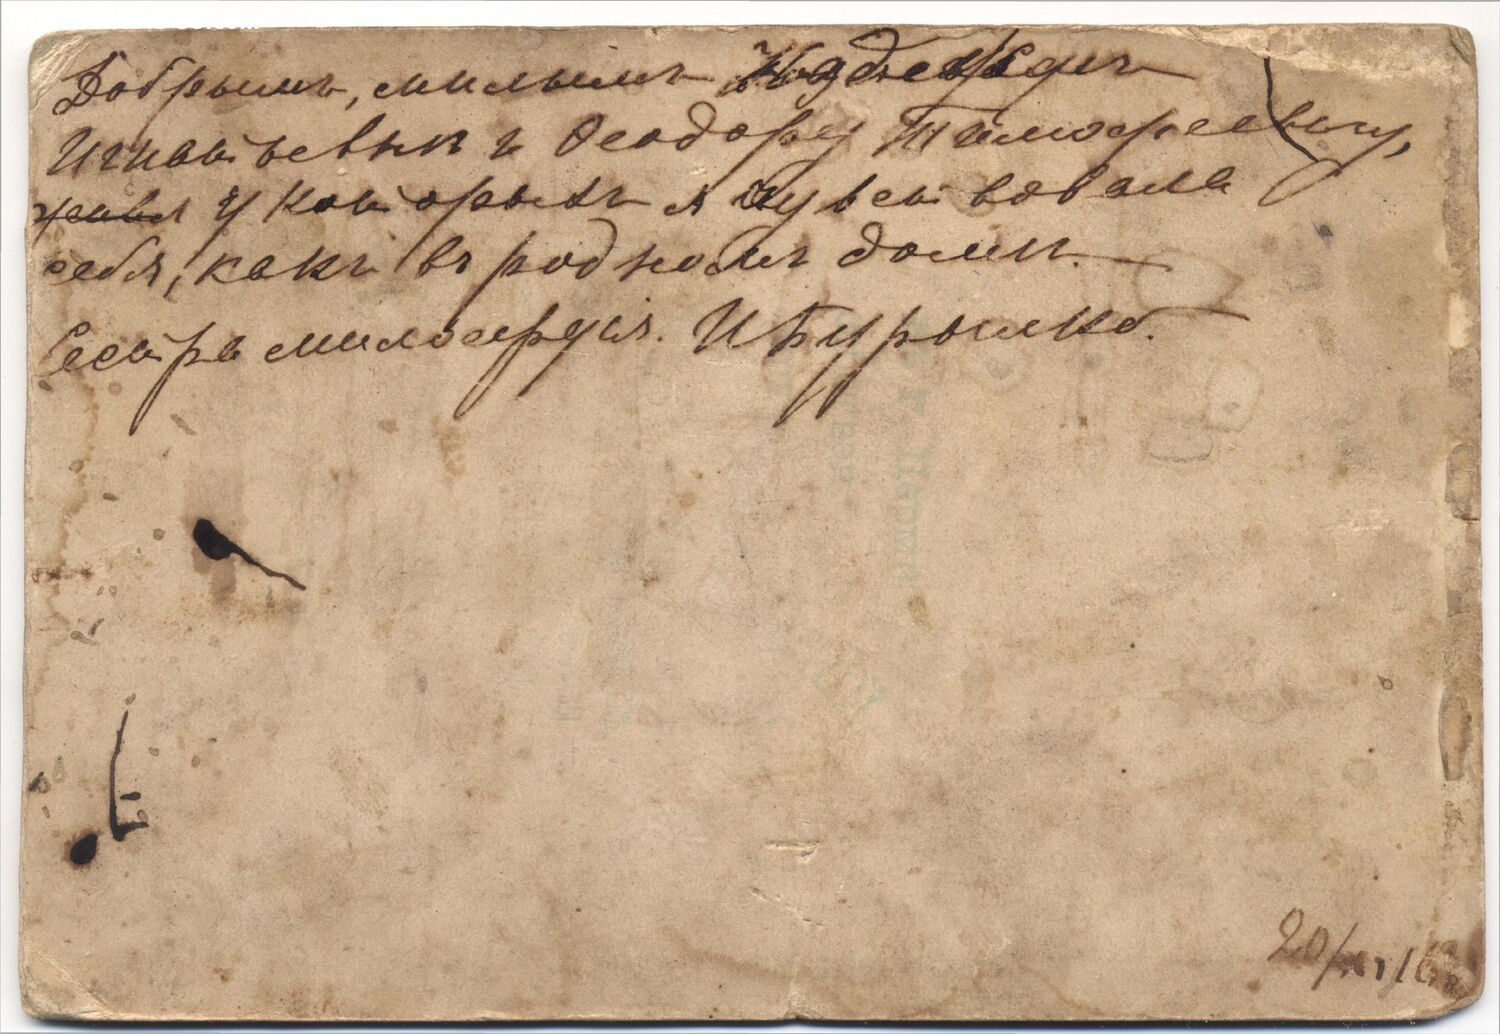 Добрымъ, милымъ Надеждѣ
Игнатьевнѣ и Ѳеодору Тимофеевичу,
живя у которыхъ я чувствовала
себя, какъ въ родномъ домѣ.
Сестра милосердія. И
20/ /16